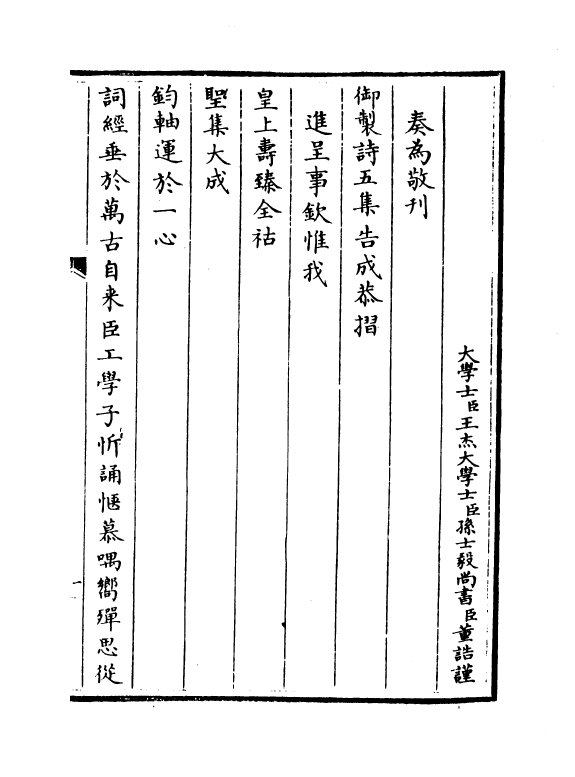 大學士臣王杰大學士臣孫士毅尚書臣董誥謹
奏為敬刊
御製詩五集告成恭摺
進呈事欽惟我
皇上壽臻全祜
聖集大成
鈞軸運於一心
詞經垂於萬古自来臣工學子忻誦愜慕喁嚮殫思從
一